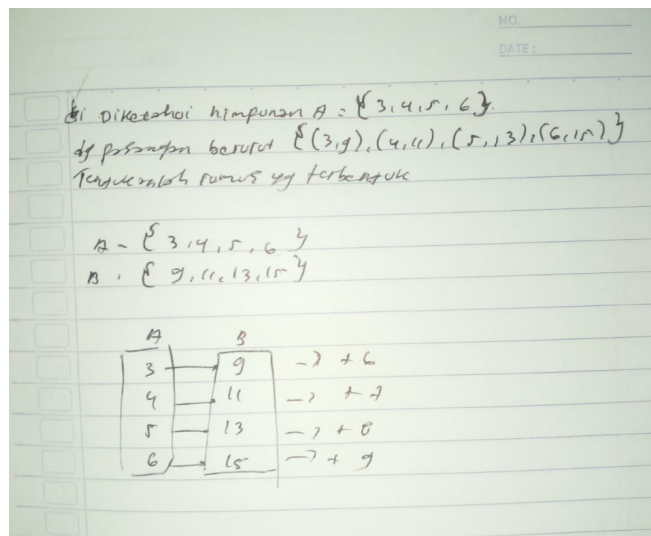 NO.
DATE:
di Diketahui himpunan A = {3,4,5,6}.
dg pasangan berurut {(3,9),(4,11),(5,13),(6,15)}
Tentukanlah rumus yg terbentuk
A = {3,4,5,6}
B = {9,11,13,15}
A B
3 9 → + 6
4 11 → + 7
5 13 → + 8
6 15 → + 9